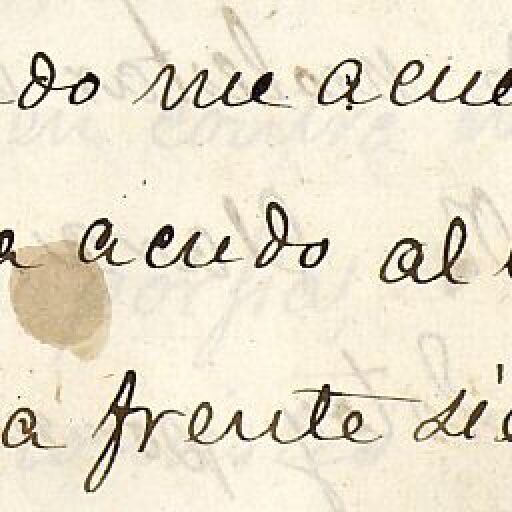 do me acue
a acudo al
a frente sie